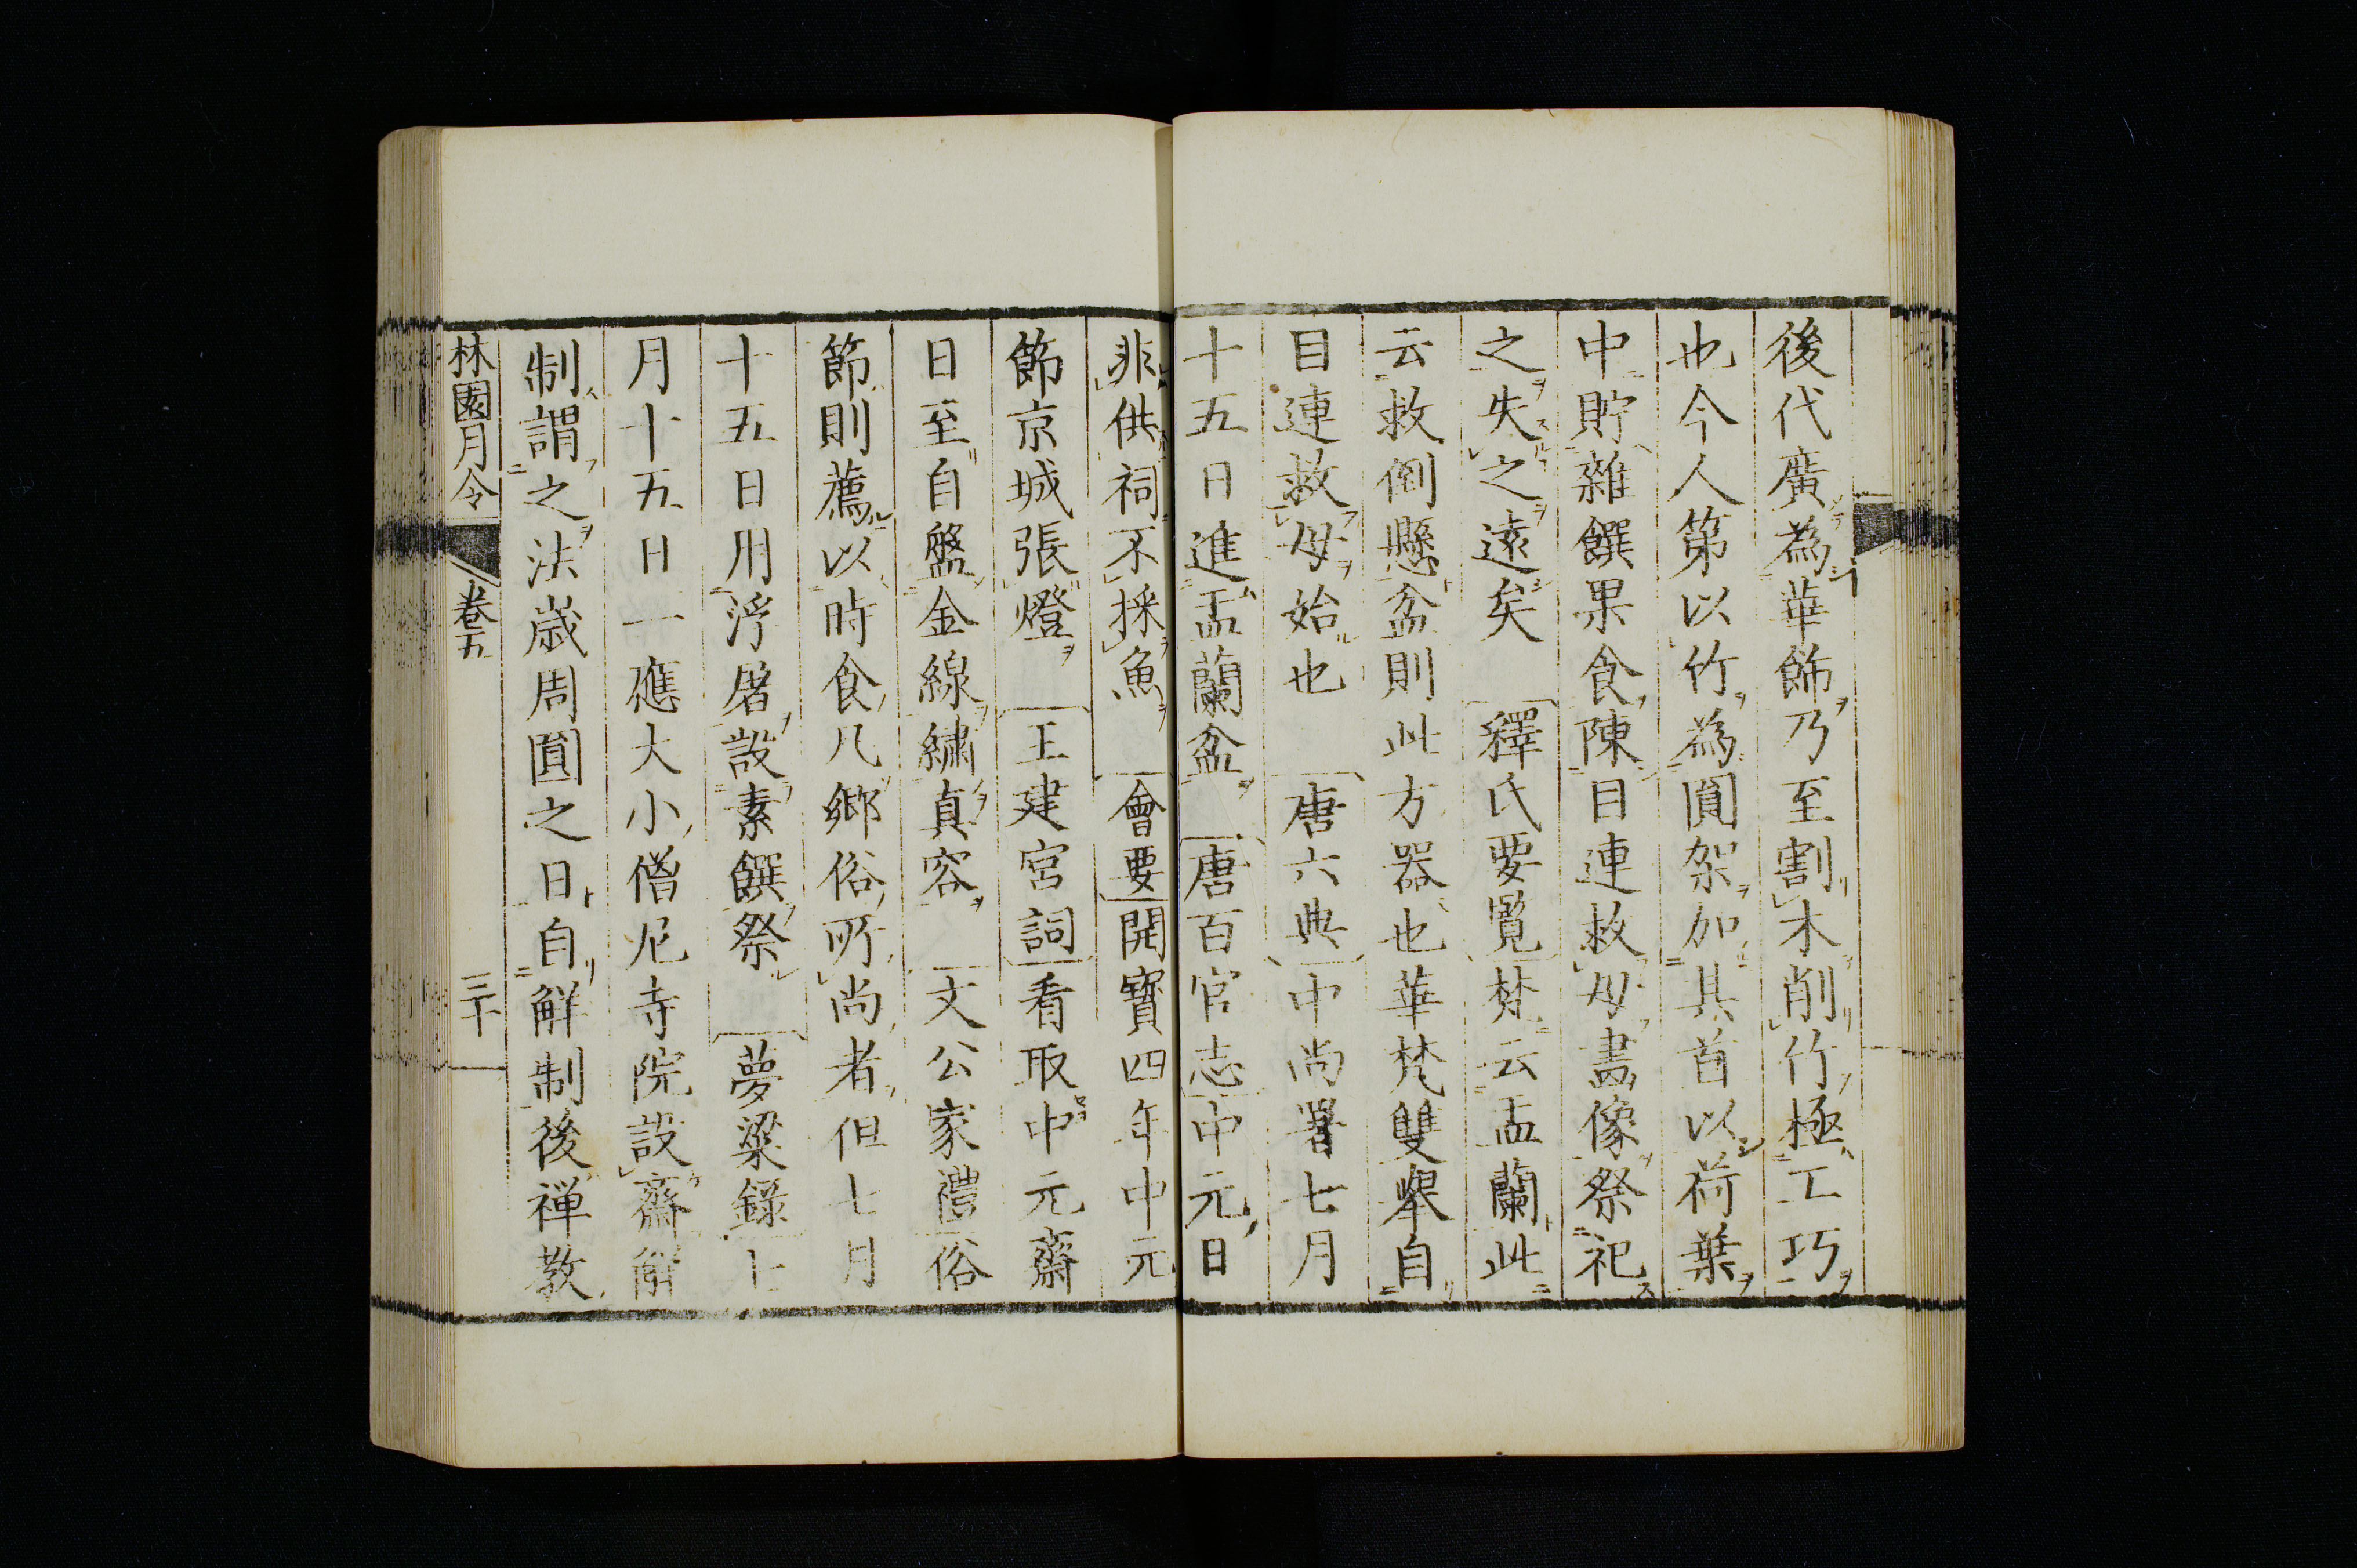 後代廣為華飾乃至割木削竹極工巧
也今人第以竹為圓架加其首以荷葉
中貯雜饌果食陳目連救母畫像祭祀
之失之遠矣 釋氏要覽梵云盂蘭此
云救倒懸盆則此方器也華梵雙舉自
目連救母始也 唐六典中尚署七月
十五日進盂蘭盆 唐百官志中元日
非供祠不採魚 會要開寶四年中元
節京城張燈 王建宮詞看取中元齋
日至自盤金線繡真容 文公家禮俗
節則薦以時食凡鄉俗所尚者但七月
十五日用浮屠設素饌祭 夢粱錄七
月十五日一應大小僧尼寺院設齋解
制謂之法歲周圓之日自解制後禅教
林園月令 卷五 三十